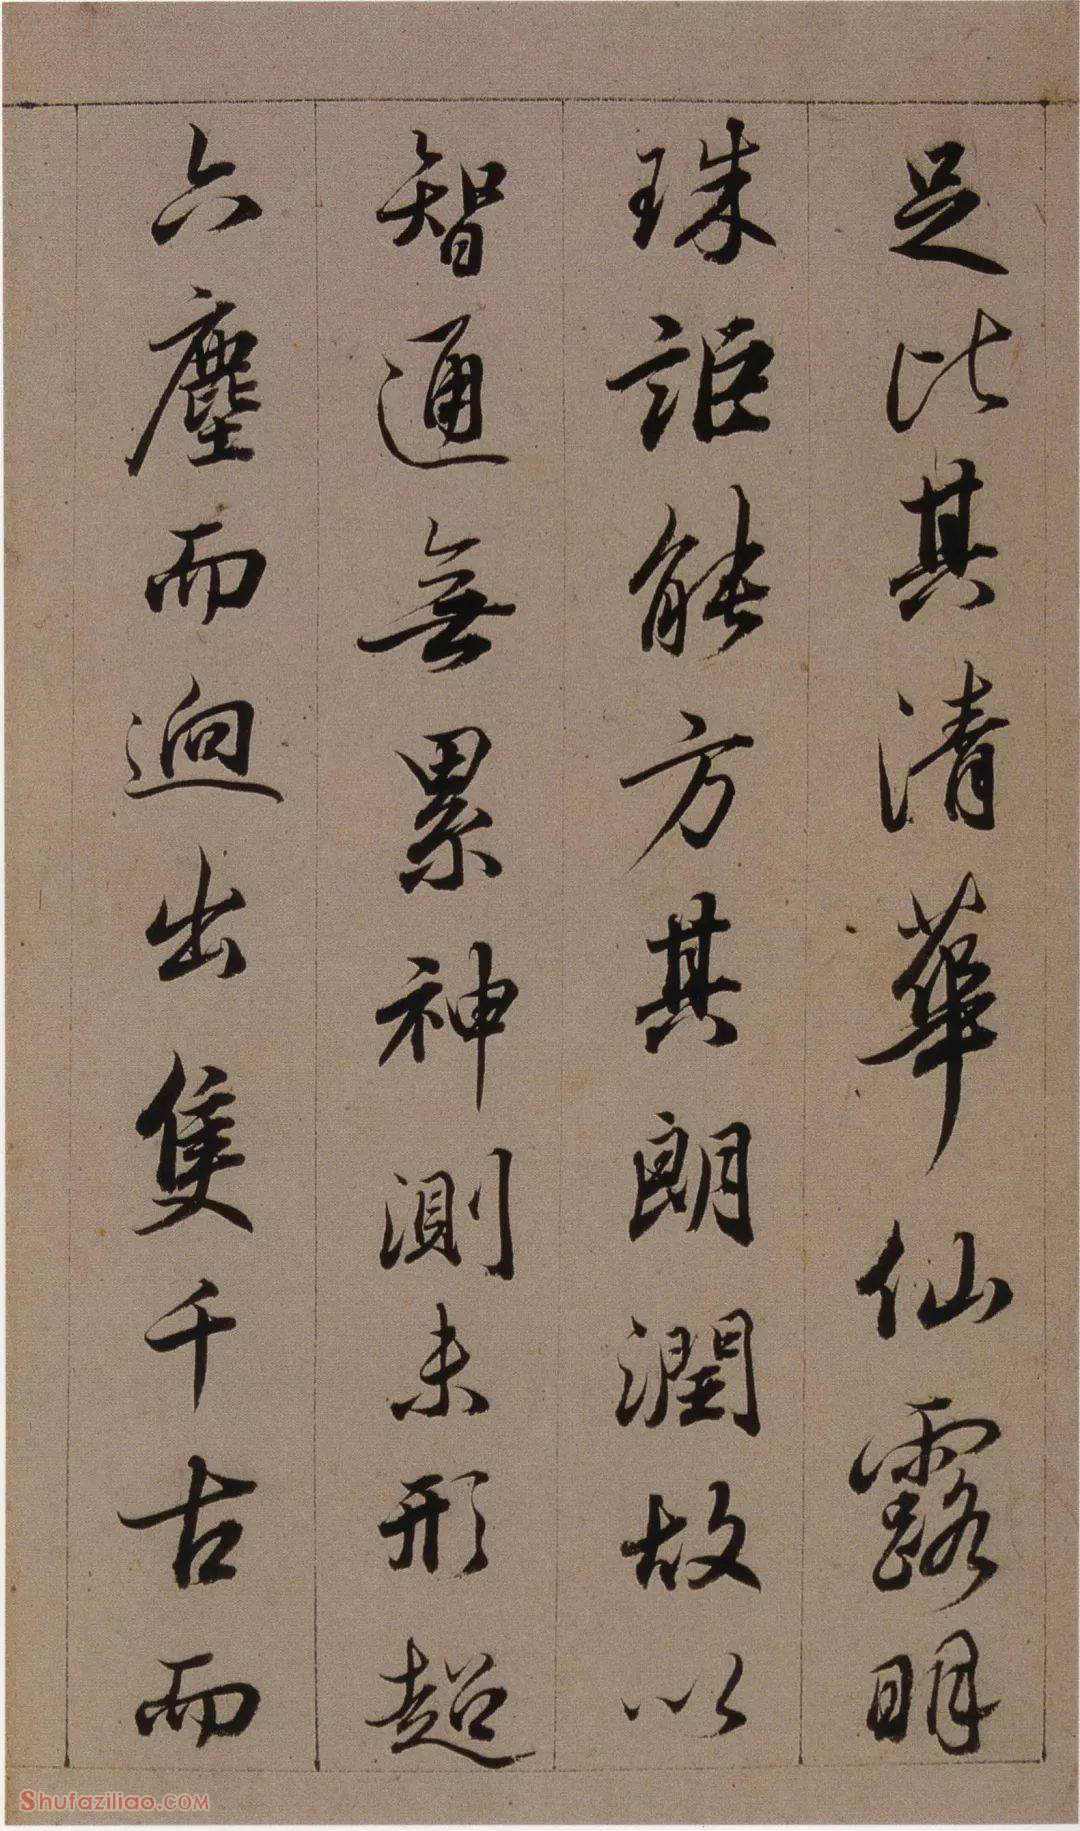 足比其清華仙露明
珠詎能方其朗潤故以
智通無累神測未形超
六塵而迥出隻千古而
Shufaziliao.COM